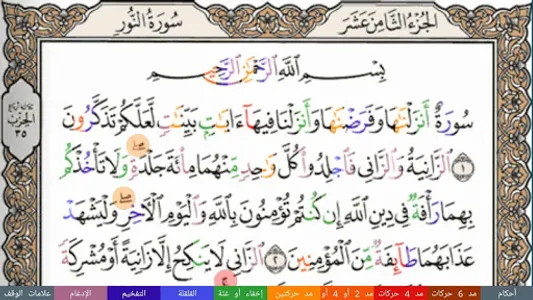 الجُزْءُ الثَّامِنَ عَشَرَ
سُورَةُ النُّورِ
الحِزْب
٣٥
بِسْمِ ٱللَّهِ ٱلرَّحْمَٰنِ ٱلرَّحِيمِ
سُورَةٌ أَنزَلْنَٰهَا وَفَرَضْنَٰهَا وَأَنزَلْنَا فِيهَآ ءَايَٰتٍۭ بَيِّنَٰتٍ لَّعَلَّكُمْ تَذَكَّرُونَ
١ ٱلزَّانِيَةُ وَٱلزَّانِى فَٱجْلِدُوا۟ كُلَّ وَٰحِدٍ مِّنْهُمَا مِا۟ئَةَ جَلْدَةٍ ۖ وَلَا تَأْخُذْكُم
بِهِمَا رَأْفَةٌ فِى دِينِ ٱللَّهِ إِن كُنتُمْ تُؤْمِنُونَ بِٱللَّهِ وَٱلْيَوْمِ ٱلْءَاخِرِ ۖ وَلْيَشْهَدْ
عَذَابَهُمَا طَآئِفَةٌ مِّنَ ٱلْمُؤْمِنِينَ ٢ ٱلزَّانِى لَا يَنكِحُ إِلَّا زَانِيَةً أَوْ مُشْرِكَةً
أحكام
مد 6 حركات
مد 4 حركات
مد 2 أو 4 أو
مد حركتين
إخفاء أو غنة
القلقلة
التفخيم
الإدغام
علامات الوقف